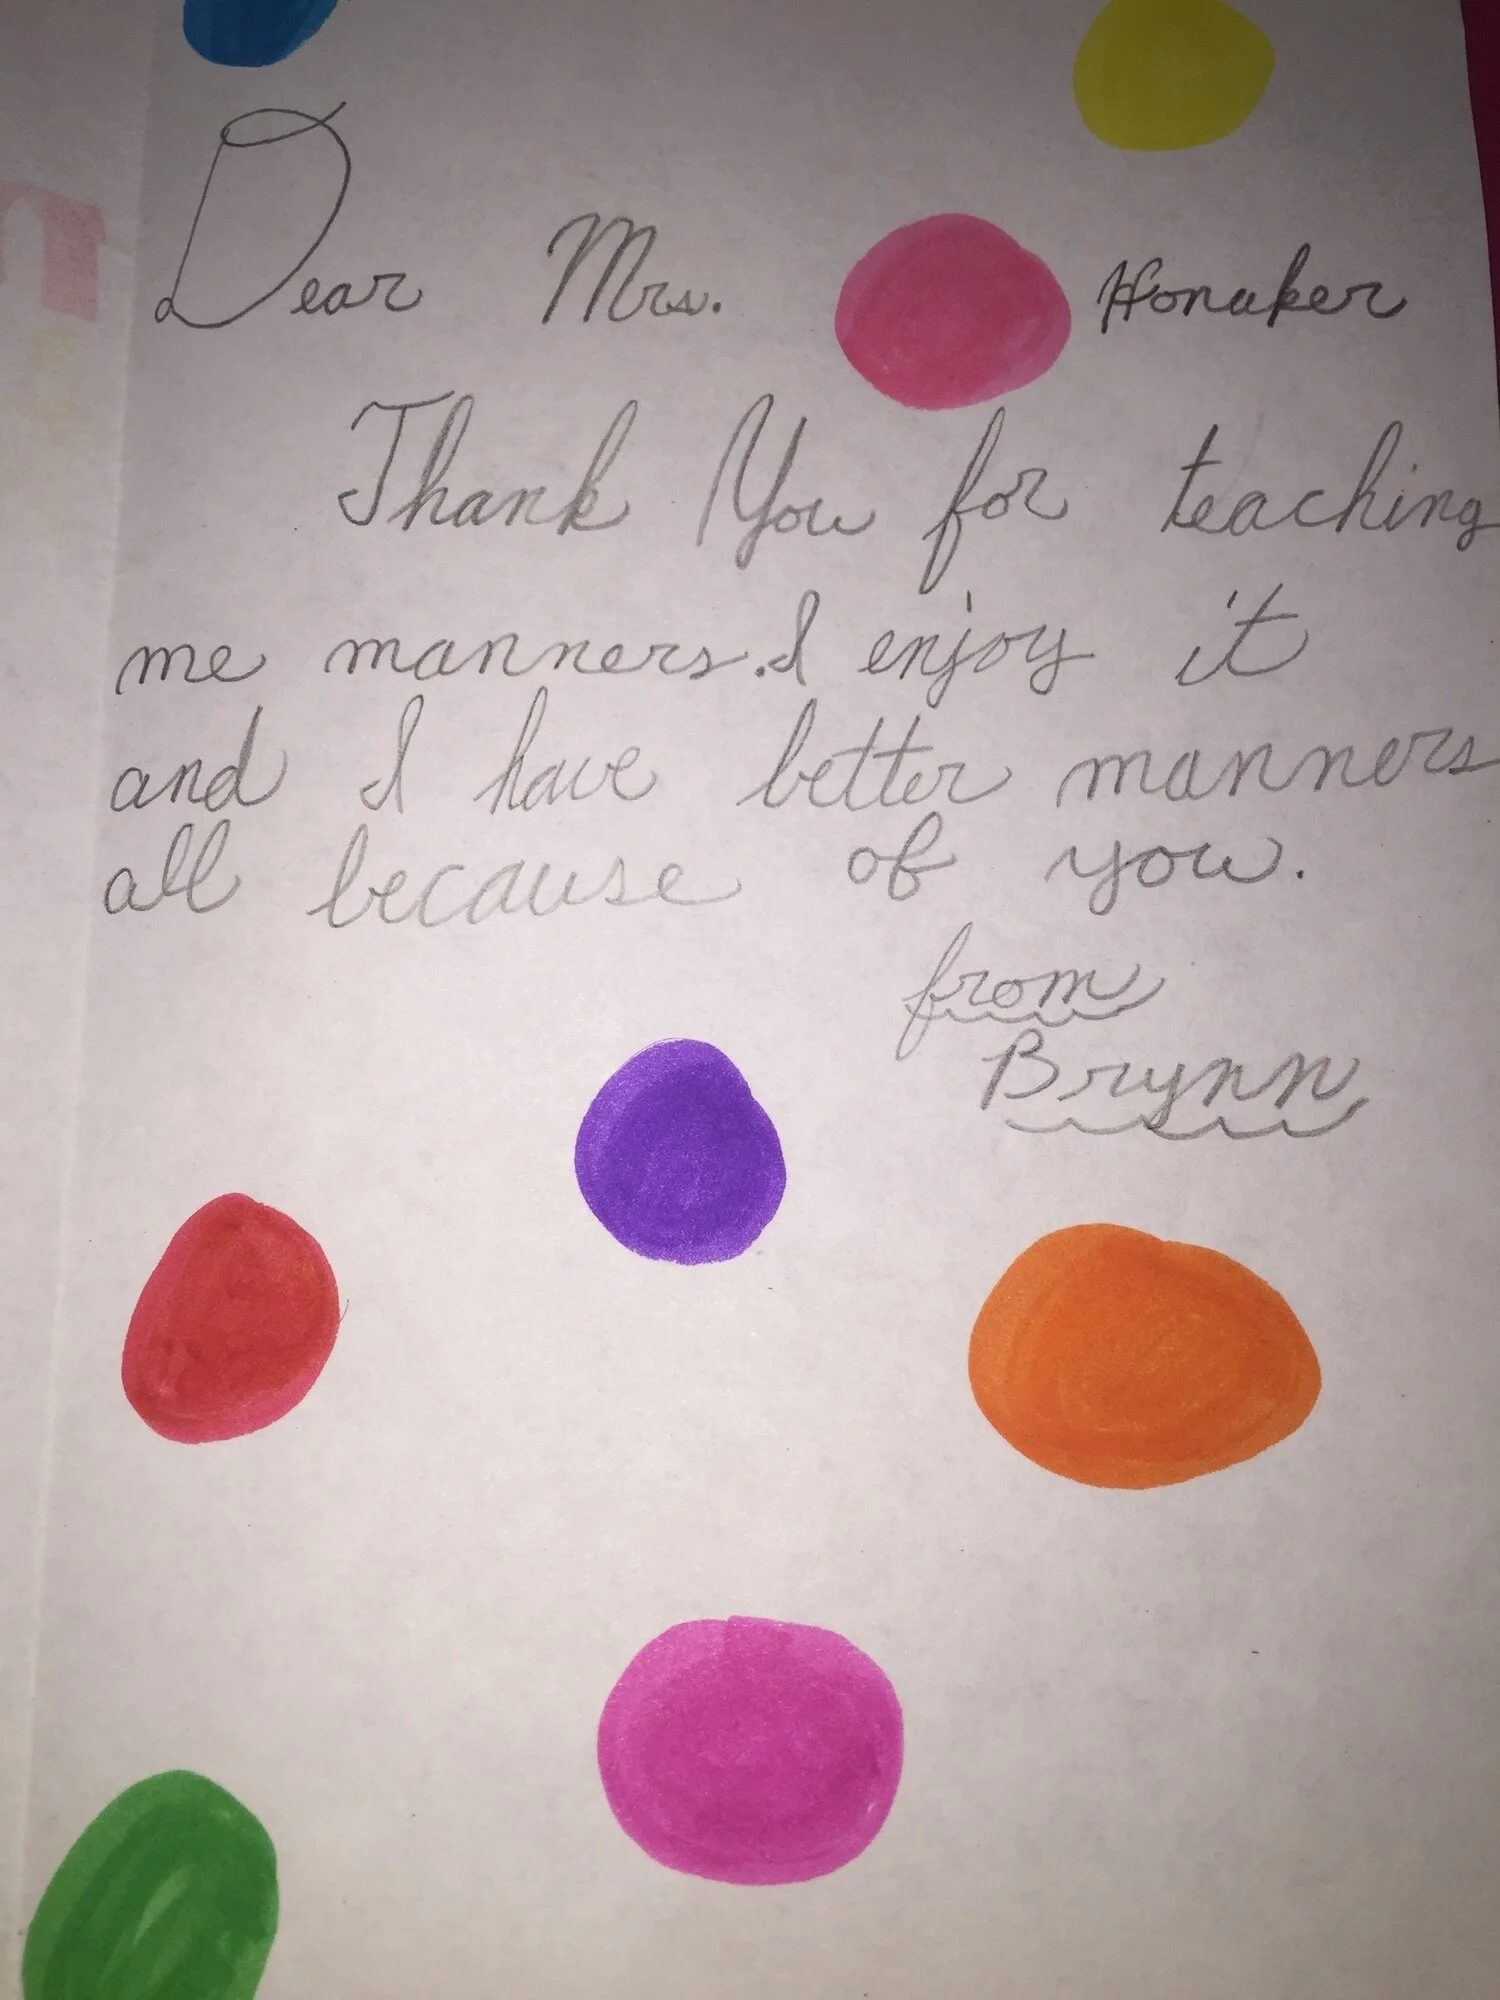 Dear Mrs. Honaker
Thank You for teaching
me manners. I enjoy it
and I have better manners
all because of you.
from
Brynn